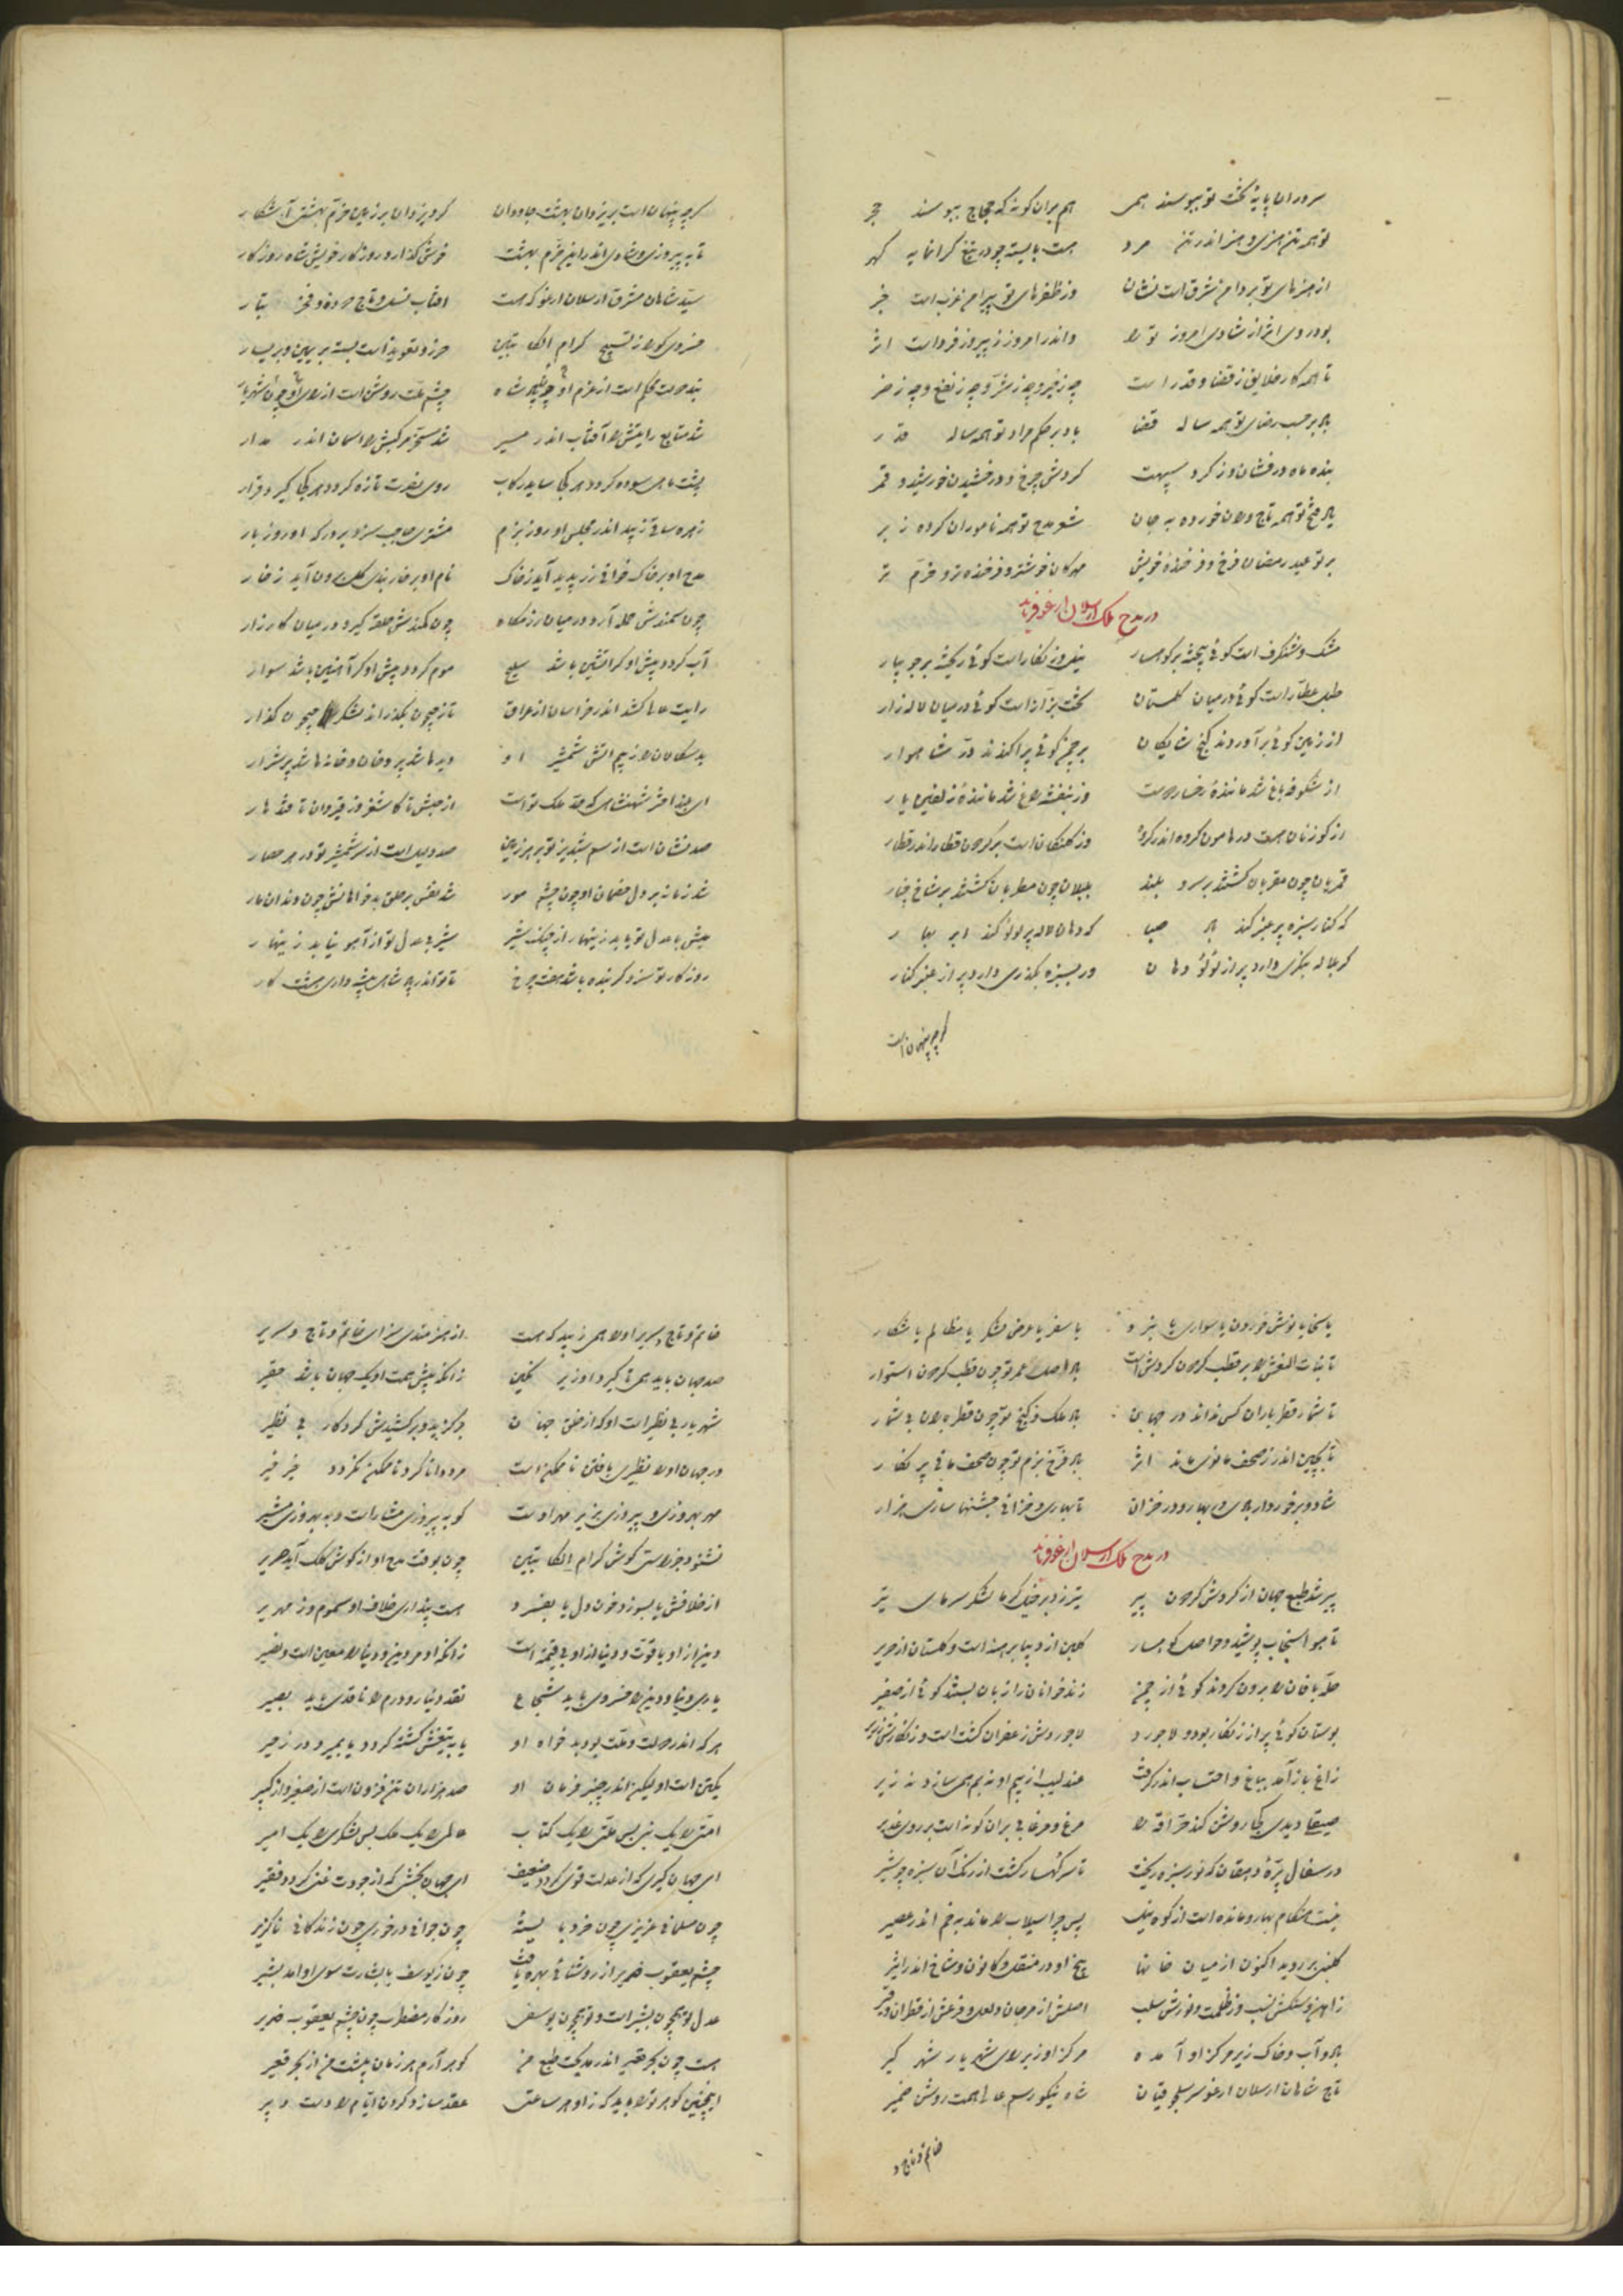 سروران پایهٔ تخت تو ببوسند همی هم بران گونه که حجاج ببوسند حجر
تو همه تن هنری و هنر اندر تن مرد هست بایسته چو در تیغ گرانمایه گهر
از هنرهای تو بر دامن شرق است نشان وز ظفرهای تو پیرامن غرب است خبر
بود روی اثر از شادی امروز ترا واندر امروز ز پیروز فردات اثر
تا همه کار خلایق ز قضا و قدر است چه ز خیر و چه ز شر و چه ز نفع و چه ز ضر
باد بر حسب رضای تو همه ساله قضا باد بر حکم مراد تو همه ساله قدر
بنده ماه درفشان وز گرد سپهت گردش چرخ و درخشیدن خورشید و قمر
باد مدح تو همه تاجوران خورده به جان شعر مدح تو همه ناموران کرده ز بر
بر تو عید رمضان فرخ و فرخنده خویش مهرگان خوشتر و فرخنده‌تر و خرم تر
در مدح ملک ارسلان ارغو فرماید
مشک و شنگرف است گوئی بیخته بر کوهسار نیل و زنگار است گوئی ریخته بر جویبار
طبل عطار است گوئی در میان گلستان تخت بزاز است گوئی در میان لاله‌زار
از زمین گوئی برآوردند گنج شایگان بر چمن گوئی پراکندند در شاهوار
از شکوفه باغ شد مانندهٔ رخسار دوست وز بنفشه راغ شد مانندهٔ زلفین یار
از گوزنان هست در هامون گروه اندر گروه وز کلنگان است بر گردون قطار اندر قطار
قمریان چون مقریان گشتند بر سرو بلند بلبلان چون مطربان گشتند بر شاخ چنار
گه کنار سبزه پر عنبر کند باد صبا گه دهان لاله پر لولو کند ابر بهار
گر به لاله بنگری دارد پر از لولو دهان ور به سبزه بگذری دارد پر از عنبر کنار
گرچه پنهان است
گرچه پنهان است بر یزدان بهشت جاودان کرد یزدان بر زمین خرم بهشتی آشکار
تا به پیروزی و شادی اندر این خرم بهشت خوش گذارد روزگار خویش شاه روزگار
سید شاهان مشرق ارسلان ارغو که هست آفتاب نسل و تاج دوده و فخر تبار
خسروی کو را ز تسبیح کرام الکاتبین حرز و تعویذ است بسته بر یمین و بر یسار
پشت دولت محکم است از عزم او چشم ملت روشن است از رای او
شد متابع رایتش را آفتاب اندر مسیر شد مسخر مرکبش را آسمان اندر مدار
پشت ماهی سوده گردد هر کجا ساید رکاب روی نصرت تازه گردد هر کجا گیرد قرار
زهره ساقی زیبد اندر مجلس او روز بزم مشتری حاجب سزد بر درگه او روز بار
مدح او بر خاک خوانی زر پدید آید ز خاک نام او بر خار بندی گل برون آید ز خار
چون سمندش حمله آرد در میان رزمگاه چون کمندش حلقه گیرد در میان کارزار
آب گردد پیش او گر آتشین باشد سلیح موم گردد پیش او گر آهنین باشد سوار
رایت عالی کشد اندر خراسان از عراق باز جیحون بگذراند لشکر جیحون گذار
بدسگالان را ز بیم آتش شمشیر او دیده‌ها شد پر دخان و خانه‌ها شد پر شرار
ای خداوند شهنشاهی که حد ملک تو است از حبش تا کاشغر وز قیروان تا قندهار
صد نشان است از سم شبدیز تو بر هر زمین صد دلیل است از سر شمشیر تو در هر حصار
شد زمانه بر دل خصمان او چون چشم مور شد نفس بر حلق بدخواهانش چون دندان مار
میش با عدل تو یابد زینهار از چنگ شیر شیر بی عدل تو از آهو نیابد زینهار
روزگار تو سزد گر بنده باشد هفت چرخ تا تو اندر پادشاهی پیشه داری هشت کار
یا سخا یا نوش خوردن یا سواری یا نبرد یا سفر یا عرض لشکر یا مظالم یا شکار
تا بنات النعش را بر قطب گردون گردش است باد اصل عمر تو چون قطب گردون استوار
تا شمار قطر باران کس نداند در جهان باد ملک و گنج تو چون قطره باران بی شمار
تا به چین اندر ز صحف مانوی ماند اثر باد فرخ بزم تو چون صحف مانی پر نگار
شاد و برخوردار بادی در بهار و در خزان تا بهاری و خزانی جشنها سازی هزار
در مدح ملک ارسلان ارغو فرماید
پیر شد طبع جهان از گردش گردون پیر تیر زد بر خیل گرما لشکر سرمای تیر
تا هوا سنجاب پوشید و حواصل کوهسار گلبن از دیبا برهنه است و گلستان از حریر
حله بافان را برون کردند گوئی از چمن زندخوانان را زبان بستند گوئی از صفیر
بوستان گوئی پر از زنگار بود و لاجورد لاجوردش زعفران گشت است و زنگارش زریر
زاغ باز آمد به باغ و احتساب اندر گرفت عندلیب از بیم او نه بم همی سازد نه زیر
صیقلی دیدی کجا روشن کند حراقه را مرغ و مرغابی بران گونه است بر روی غدیر
در سفال پره دهقان گه نور سبزه ریخت تا سر کهسار گشت از رنگ آن سبزه چو شیر
نیست هنگام بهار و مانده است از کوه نیک پس چرا سیلاب را ماند به خم اندر عصیر
گلبنی بر روید اکنون از میان خانها بیخ او در منقل و کانون و شاخ اندر اثیر
ز آهن و سنگش نسب وز ظلمت و نورش سلب اصلش از مرجان و لعل و فرعش از قطران و قیر
باد و آب و خاک زیر مرکز او آمده مرکز او زیر رای شهریار شهر گیر
تاج شاهان ارسلان ارغو سر سلجوقیان شاه نیکو رسم عالی همت روشن ضمیر
خاتم و تاج و
خاتم و تاج و سریر او را همی زیبد که هست از هنرمندی سزای خاتم و تاج و سریر
صد جهان باید همی تا گیرد او زیر نگین زانکه پیش همت او یک جهان باشد حقیر
شهریار بی نظیر است او که از خلق جهان برگزید و برکشیدش کردگار بی نظیر
در جهان او را نظیری یافتن ناممکن است مرد دانا گرد ناممکن نگردد خیر خیر
مهر بهروزی و پیروزی بزیر مهر اوست کو به پیروزی مشار است و به بهروزی مشیر
نشنود جز راستی گوش کرام الکاتبین چون بوقت مدح او از گوش کلک آید صریر
از خلافش یا بسوزد خون دل یا بفسرد هست پنداری خلاف او سموم و زمهریر
دین از او باقوت و دنیا از او بی فتنه است زانکه او مر دین و دنیا را معین است و نصیر
یاری دنیا و دین را خسروی باید شجاع نقد دینار و درم را ناقدی باید بصیر
هر که اندر دولت و ملت بود بدخواه او یا به تیغش کشته گردد یا بمیرد در زحیر
یک تن است او لیکن اندر چنبر فرمان او صد هزاران تن فزون است از صغیر و از کبیر
امتی را یک نبی بس ملتی را یک کتاب عالمی را یک ملک بس لشکری را یک امیر
ای جهانگیری که از عدلت قوی گردد ضعیف ای جهان بخشی که از جودت غنی گردد فقیر
چون مسلمانی عزیزی چون خرد بایسته چون جوانی درخوری چون زندگانی ناگزیر
چشم یعقوب ضریر از روشنائی بهره یافت چون ز یوسف با بشارت سوی او آمد بشیر
عدل تو همچون بشیر است و تو همچون یوسفی روزگار مضطرب چون چشم یعقوب ضریر
هست چون بحر قعیر اندر مدیحت طبع من گوهر آرم هر زمان پیشت من از بحر قعیر
اینچنین گوهر ترا باید که زاو هر ساعتی عقد سازد گردن ایام را دست دبیر